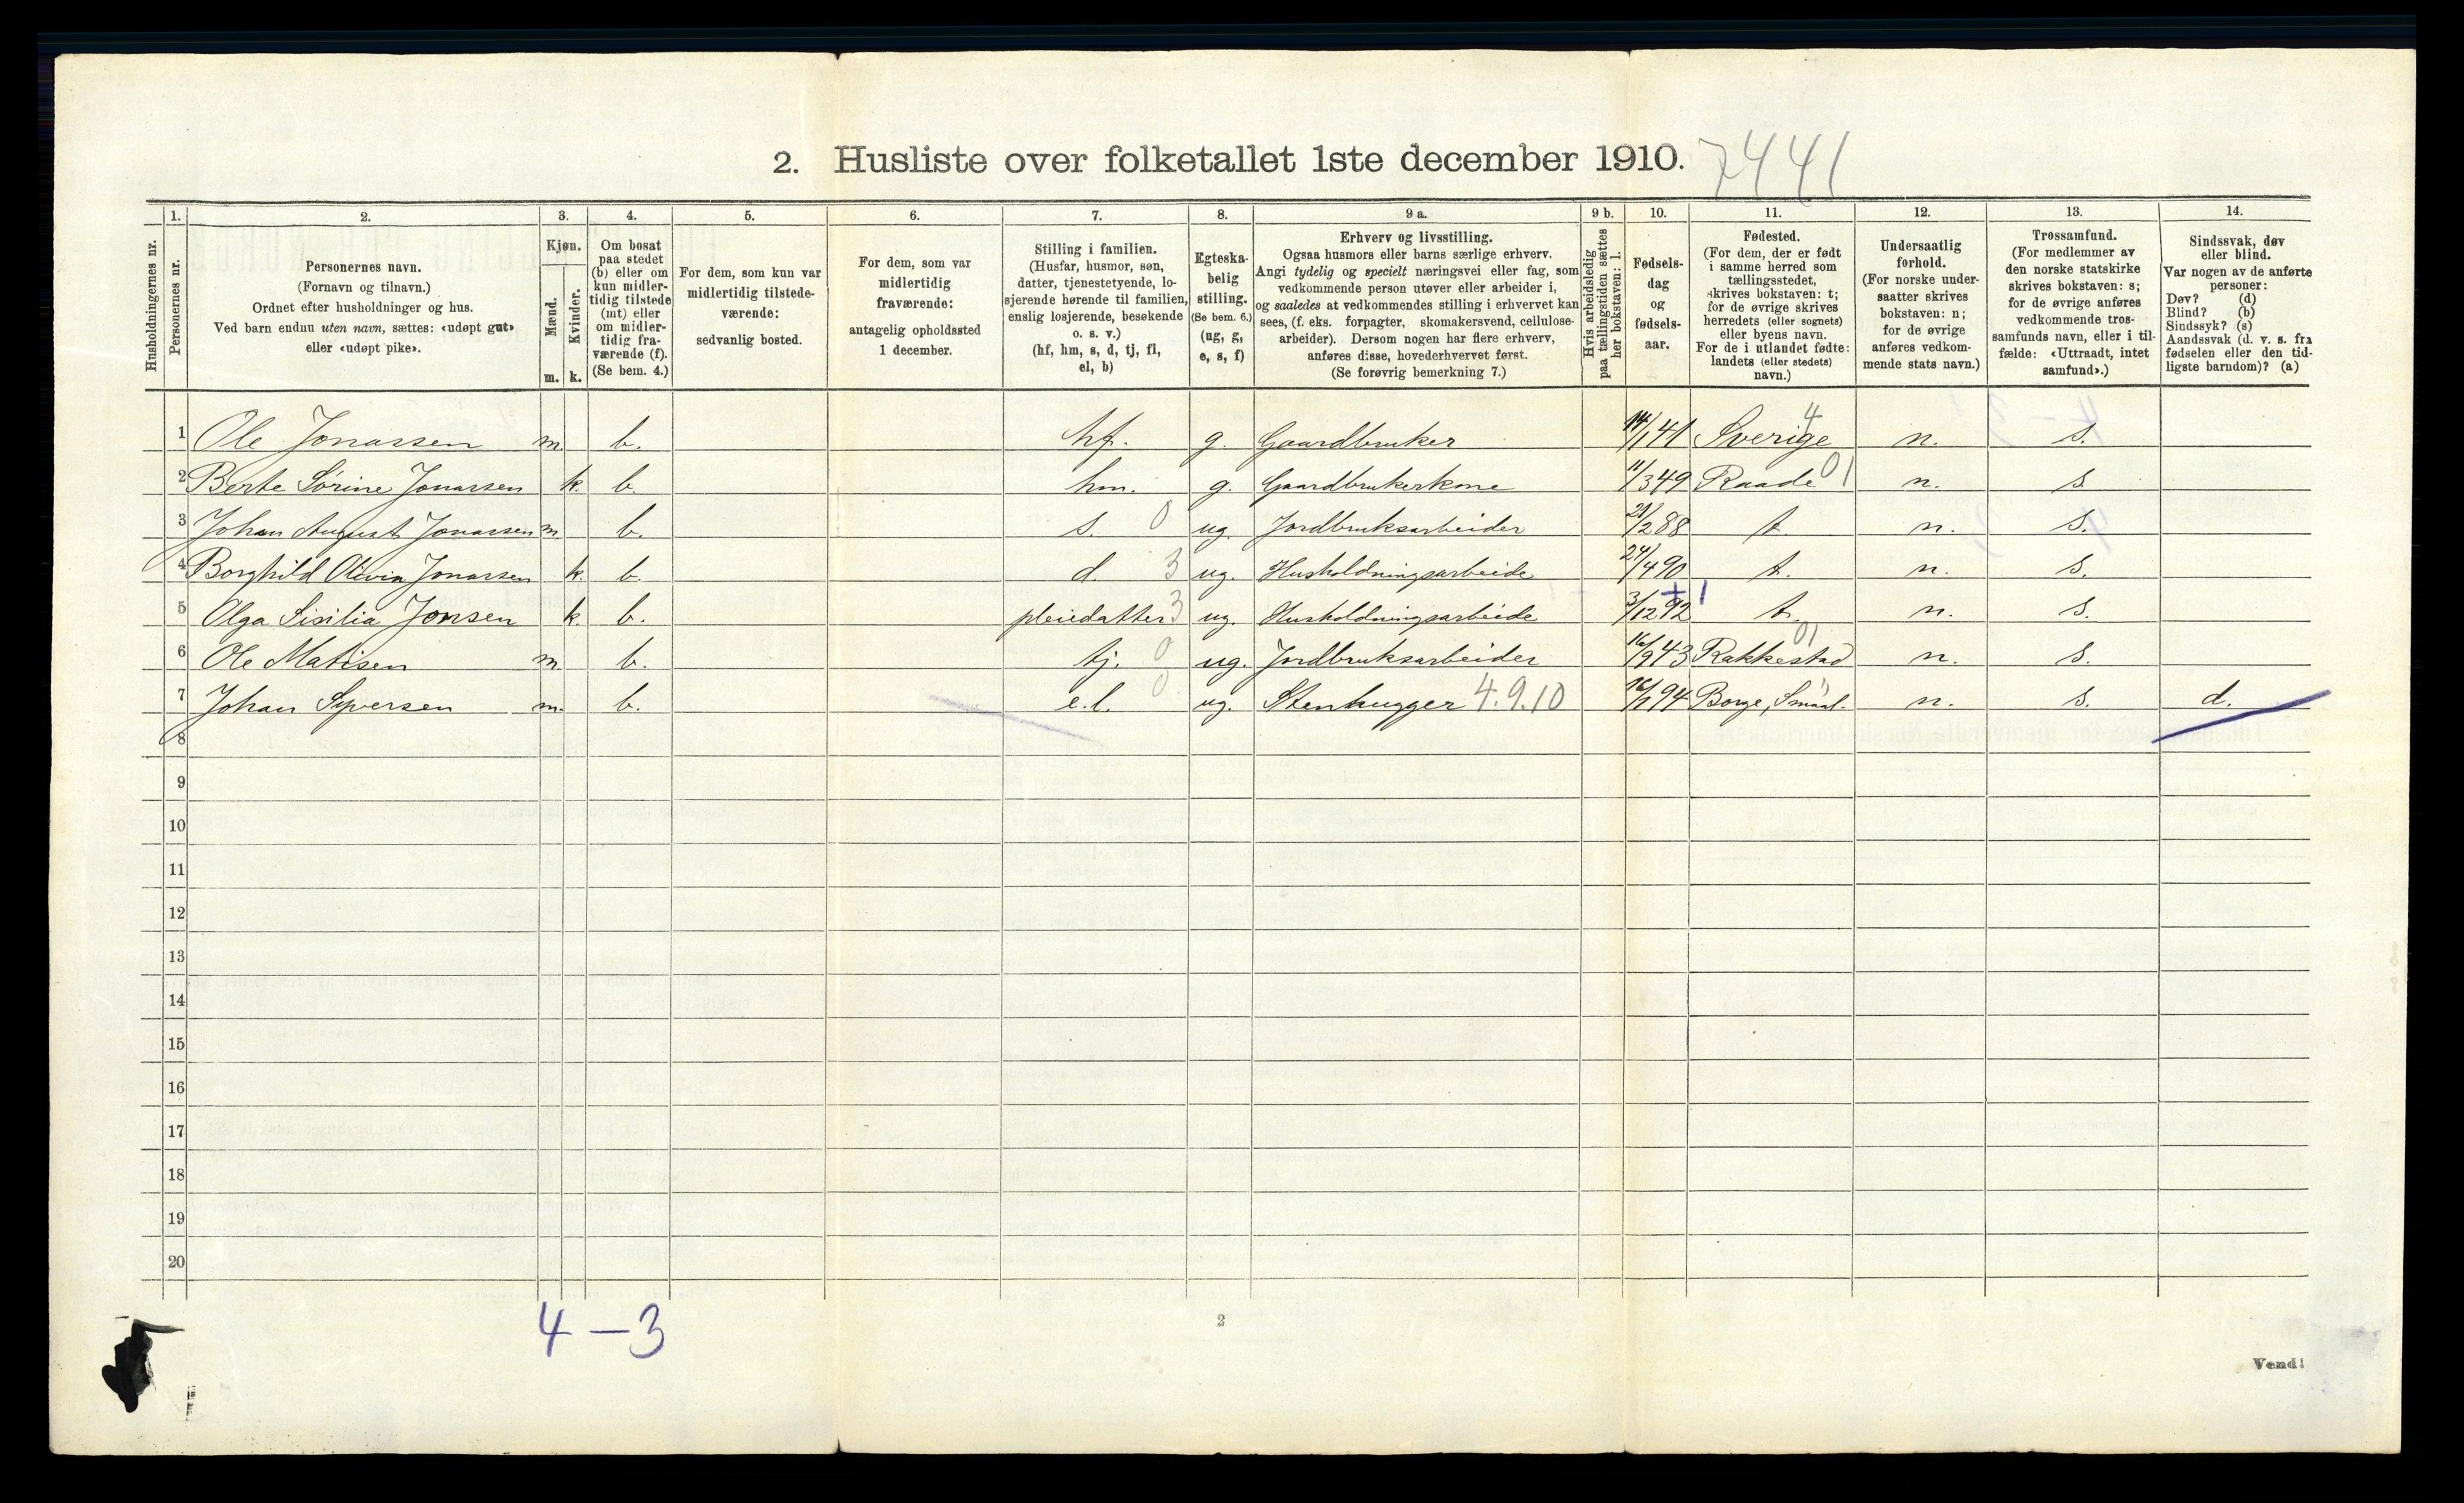 2. Husliste over folketallet 1ste december 1910. 7441
Husholdningernes nr.
1. Personernes nr.
2. Personernes navn.
(Fornavn og tilnavn.)
Ordnet efter husholdninger og hus.
Ved barn endnu uten navn, sættes: «udøpt gut»
eller «udøpt pike».
3. Kjøn.
Mænd. m.
Kvinder. k.
4. Om bosat
paa stedet
(b) eller om
kun midler-
tidig tilstede
(mt) eller
om midler-
tidig fra-
værende (f).
(Se bem. 4.)
5. For dem, som kun var
midlertidig tilstede-
værende:
sedvanlig bosted.
6. For dem, som var
midlertidig
fraværende:
antagelig opholdssted
1 december.
7. Stilling i familien.
(Husfar, husmor, søn,
datter, tjenestetyende, lo-
sjerende hørende til familien,
enslig losjerende, besøkende
o. s. v.)
(hf, hm, s, d, tj, fl,
el, b)
8. Egteska-
belig
stilling.
(Se bem. 6.)
(ug, g,
e, s, f)
9 a. Erhverv og livsstilling.
Ogsaa husmors eller barns særlige erhverv.
Angi tydelig og specielt næringsvei eller fag, som
vedkommende person utøver eller arbeider i,
og saaledes at vedkommendes stilling i erhvervet kan
sees, (f. eks. forpagter, skomakersvend, cellulose-
arbeider). Dersom nogen har flere erhverv,
anføres disse, hovederhvervet først.
(Se forøvrig bemerkning 7.)
9 b. Hvis arbeidsledig
paa tællingstiden sættes
her bokstaven: l.
10. Fødsels-
dag
og
fødsels-
aar.
11. Fødested.
(For dem, der er født
i samme herred som
tællingsstedet,
skrives bokstaven: t;
for de øvrige skrives
herredets (eller sognets)
eller byens navn.
For de i utlandet fødte:
landets (eller stedets)
navn.)
12. Undersaatlig
forhold.
(For norske under-
saatter skrives
bokstaven: n;
for de øvrige
anføres vedkom-
mende stats navn.)
13. Trossamfund.
(For medlemmer av
den norske statskirke
skrives bokstaven: s;
for de øvrige anføres
vedkommende tros-
samfunds navn, eller i til-
fælde: «Uttraadt, intet
samfund».)
14. Sindssvak, døv
eller blind.
Var nogen av de anførte
personer:
Døv? (d)
Blind? (b)
Sindssyk? (s)
Aandssvak (d. v. s. fra
fødselen eller den tid-
ligste barndom)? (a)
1 Ole Jonassen m. b. hf. g. Gaardbruker 14/1 41 Sverige 4 n. s.
2 Berte Sørine Jonassen k. b. hm. g. Gaardbrukerkone 11/3 49 Raade 01 n. s.
3 Johan August Jonassen m. b. s. 0 ug. Jordbruksarbeider 21/2 88 t. n. s.
4 Borghild Olivia Jonassen k. b. d. 3 ug. Husholdningsarbeide 24/4 90 t. n. s.
5 Olga Sisilia Jonsen k. b. pleiedatter 3 ug. Husholdningsarbeide 3/12 92 t. n. s.
6 Ole Matisen m. b. tj. 0 ug. Jordbruksarbeider 16/9 43 Rakkestad 01 n. s.
7 Johan Syversen m. b. e.l. 0 ug. Stenhugger 4.9.10 94 Borge, Smaal. n. s. d.
8
9
10
11
12
13
14
15
16
17
18
19
20
4 – 3
2
Vend!